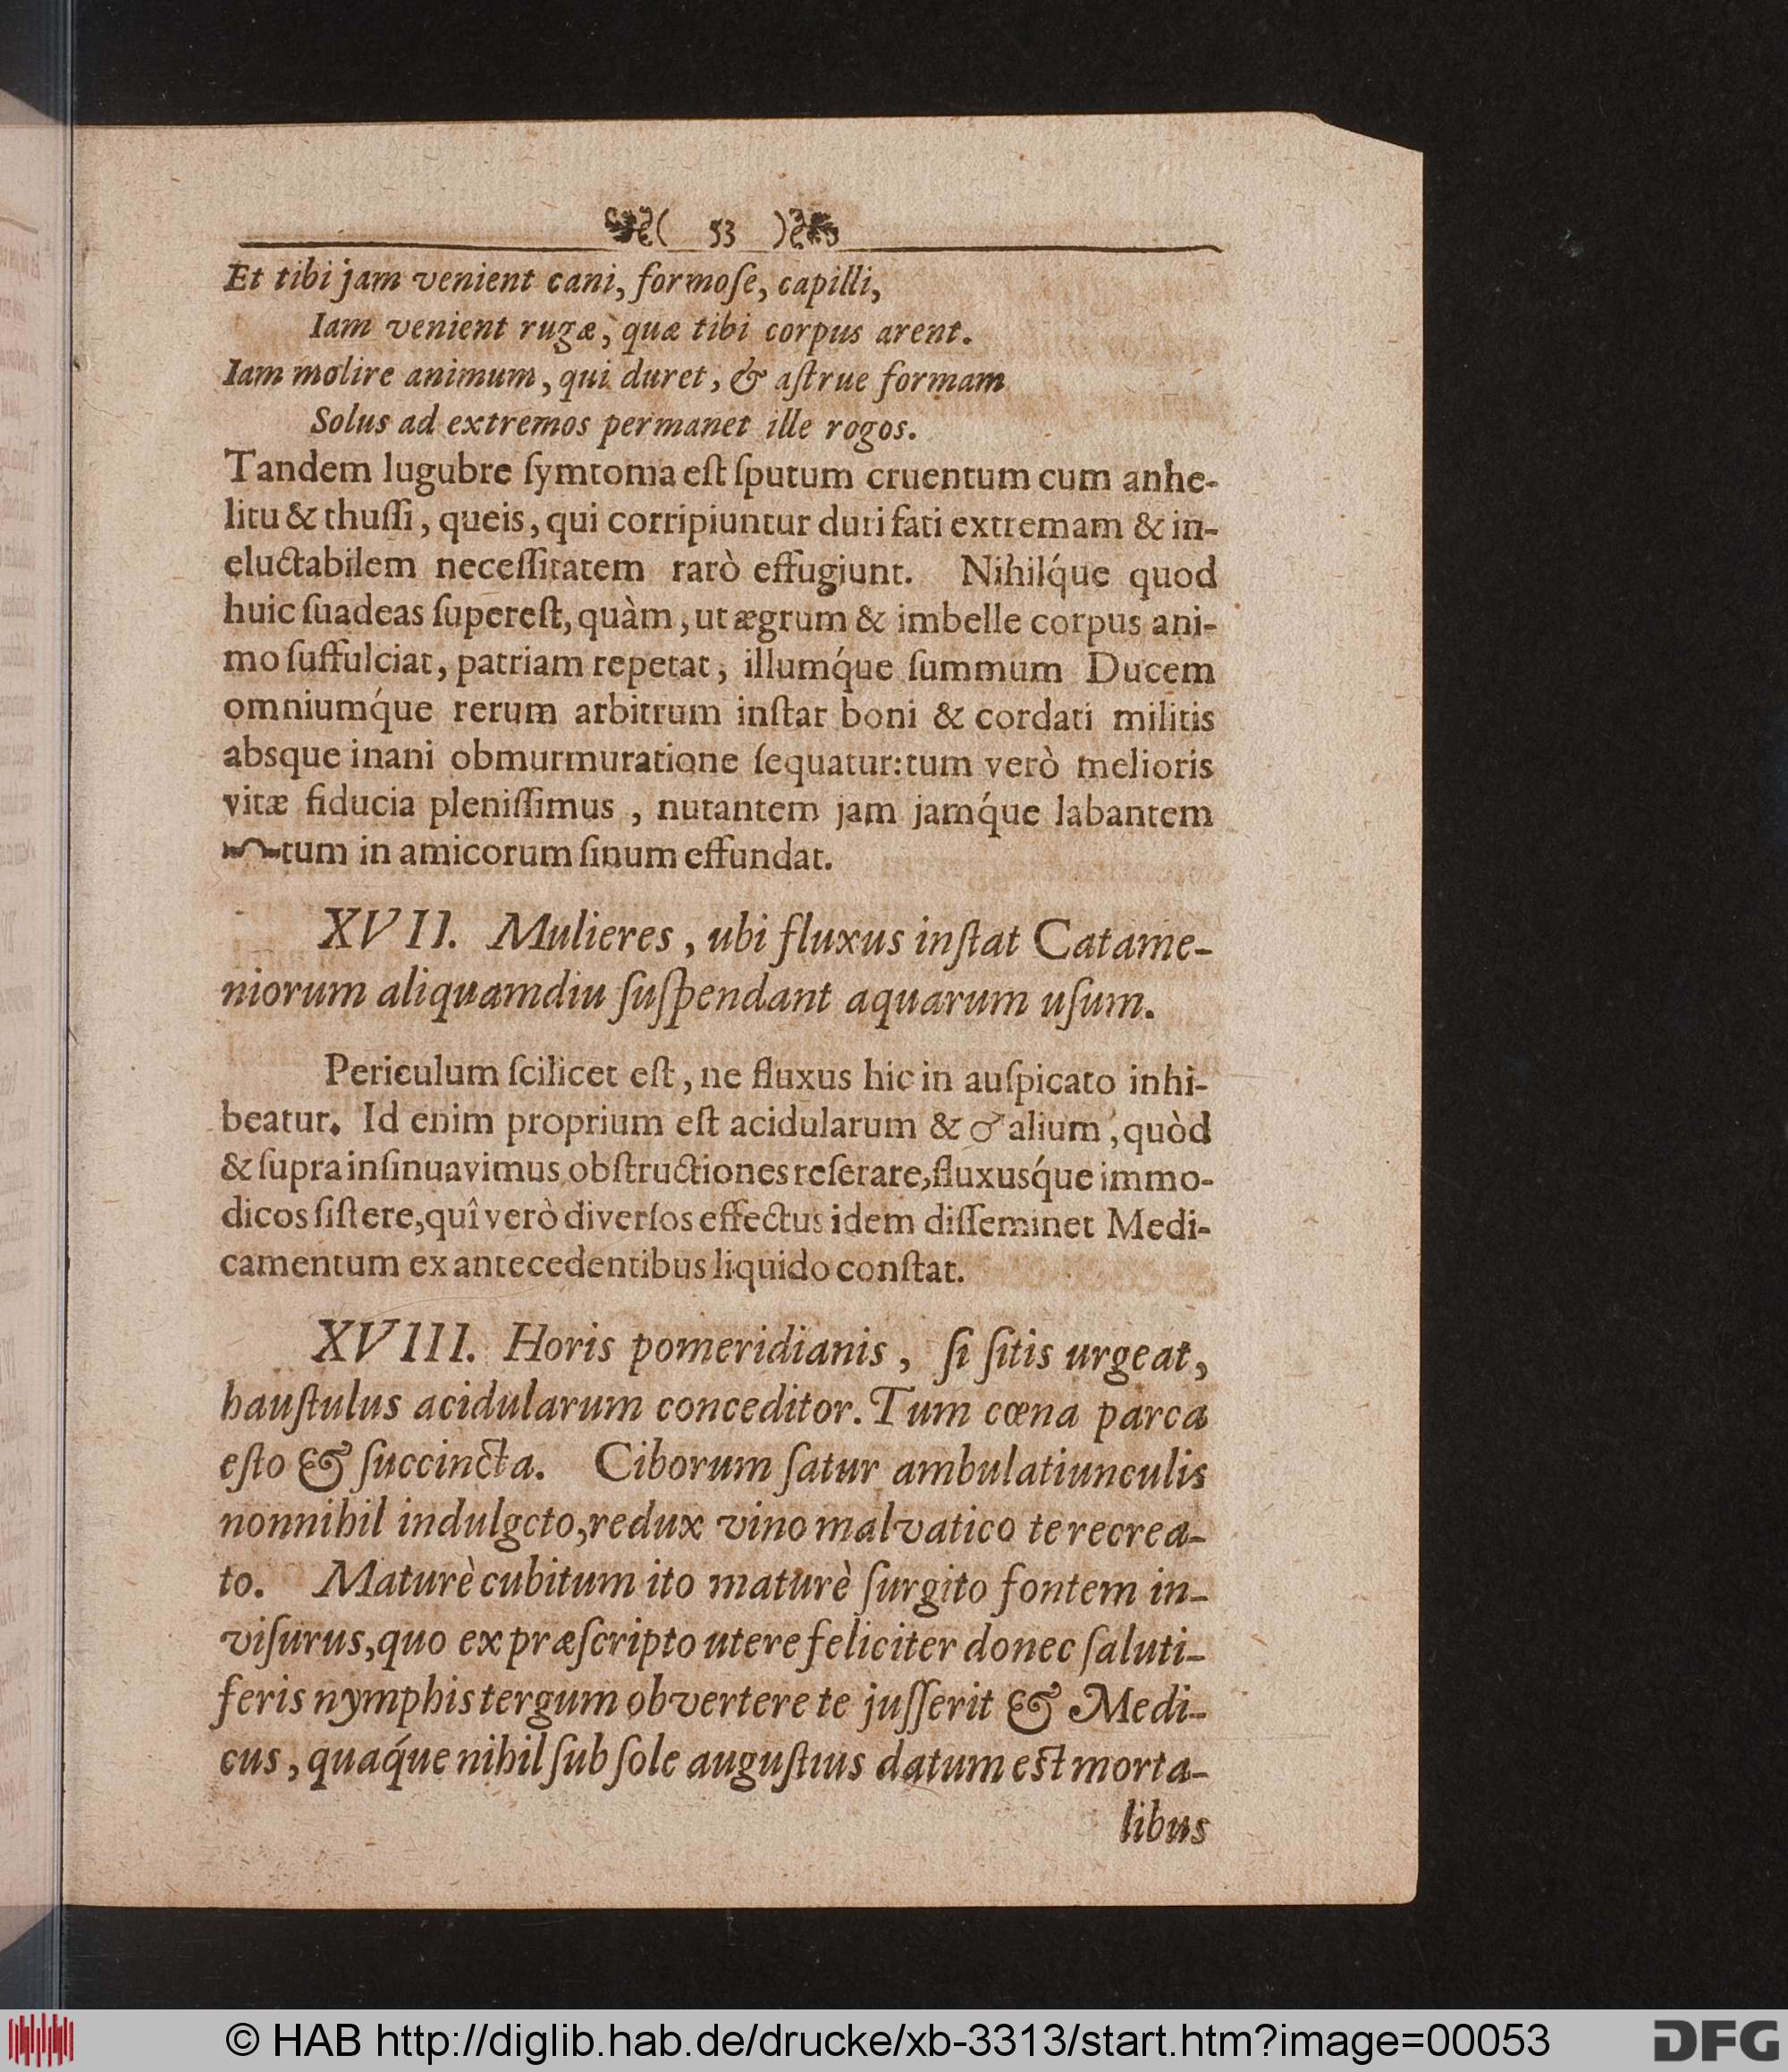 ( 53 )
Et tibi jam venient cani, formoſe, capilli,
Iam venient rugæ, quæ tibi corpus arent.
Iam molire animum, qui duret, & aſtrue formam
Solus ad extremos permanet ille rogos.
Tandem lugubre ſymtoma eſt ſputum cruentum cum anhe-
litu & thuſſi, queis, qui corripiuntur duri fati extremam & in-
eluctabilem neceſſitatem rarò effugiunt. Nihilq́ue quod
huic ſuadeas ſupereſt, quàm, ut ægrum & imbelle corpus ani-
mo ſuffulciat, patriam repetat, illumq́ue ſummum Ducem
omniumq́ue rerum arbitrum inſtar boni & cordati militis
absque inani obmurmuratione ſequatur: tum verò melioris
vitæ fiducia pleniſſimus, nutantem jam jamq́ue labantem
tum in amicorum ſinum effundat.
XVII. Mulieres, ubi fluxus inſtat Catame-
niorum aliquamdiu ſuſpendant aquarum uſum.
Periculum ſcilicet eſt, ne fluxus hic in auſpicato inhi-
beatur. Id enim proprium eſt acidularum & ♂alium, quòd
& ſupra inſinuavimus obſtructiones reſerare, fluxusq́ue immo-
dicos ſiſtere, quî verò diverſos effectus idem diſſeminet Medi-
camentum ex antecedentibus liquido conſtat.
XVIII. Horis pomeridianis, ſi ſitis urgeat,
hauſtulus acidularum conceditor. Tum cœna parca
eſto & ſuccincta. Ciborum ſatur ambulatiunculis
nonnihil indulgcto, redux vino malvatico te recrea-
to. Maturè cubitum ito maturè ſurgito fontem in-
viſurus, quo ex præſcripto utere feliciter donec ſaluti-
feris nymphis tergum obvertere te juſſerit & Medi-
cus, quaq́ue nihil ſub ſole auguſtius datum est morta-
libus
© HAB http://diglib.hab.de/drucke/xb-3313/start.htm?image=00053
DFG